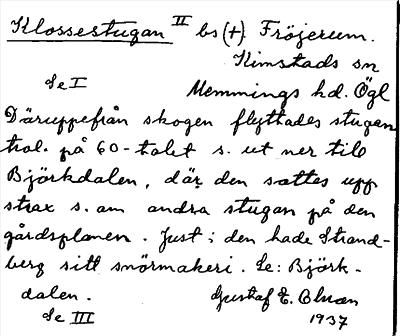 Klossestugan II bs (+) Fröjerum.
Kimstads sn
Se I Memmings hd. Ögl
Däruppefrån skogen flyttades stugan
tral. på 60-talet s. ut ner till
Björkdalen, där den sattes upp
strax s. om andra stugan på den
gårdsplanen. Just i den hade Strand-
berg sitt snörmakeri. Se: Björk-
dalen. Gustaf E. Olsson
Se III 1937